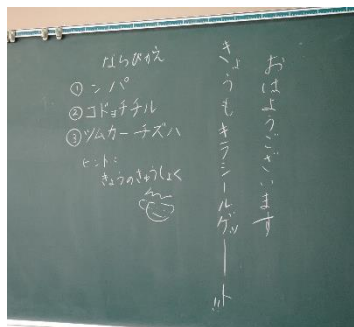 おはようございます
きょうもキラシールゲッーート!!
ならびかえ
① ンパ
② コドョチチル
③ ツムカーチズハ
ヒント:
きょうのきゅうしょく